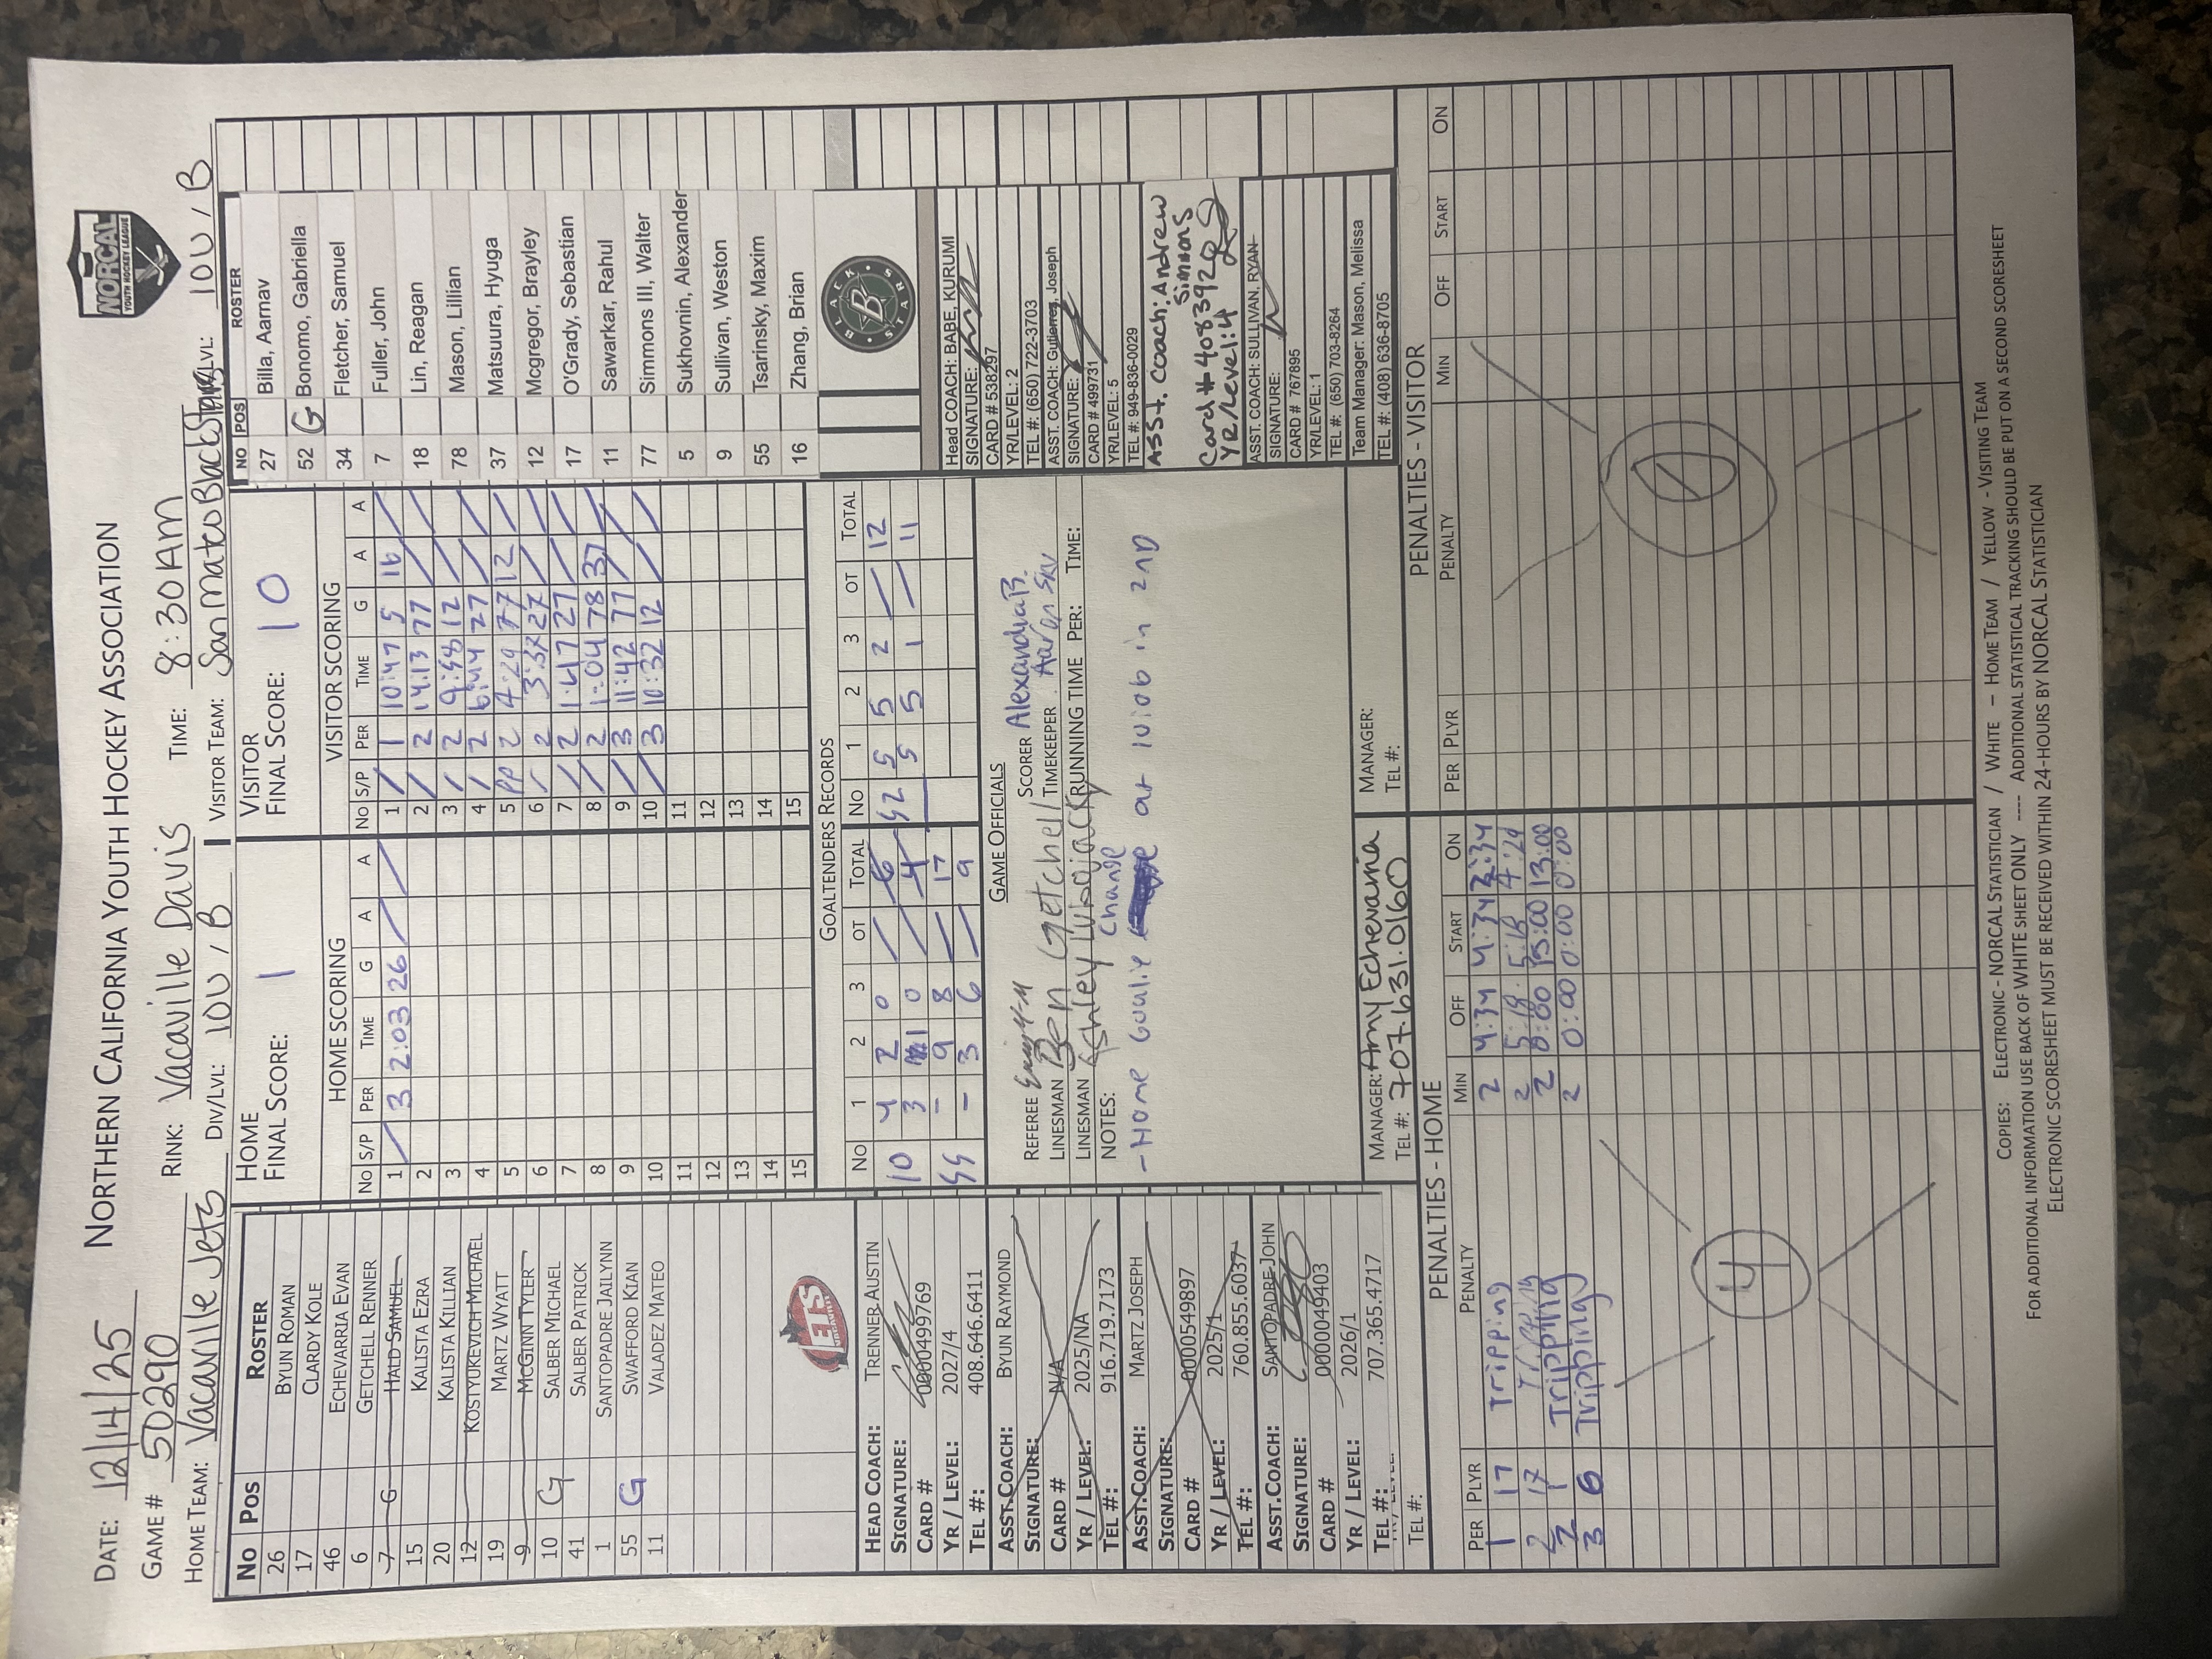 NORTHERN CALIFORNIA YOUTH HOCKEY ASSOCIATION
NORCAL
YOUTH HOCKEY LEAGUE
DATE: 12/14/25
GAME # 50290 RINK: Vacaville Davis TIME: 8:30AM
HOME TEAM: Vacaville Jets DIV/LVL: 10U / B VISITOR TEAM: San Mateo Black Stars DIV/LVL: 10U / B
No Pos ROSTER
26 BYUN ROMAN
17 CLARDY KOLE
46 ECHEVARRIA EVAN
6 GETCHELL RENNER
7 G HALD SAMUEL
15 KALISTA EZRA
20 KALISTA KILLIAN
12 KOSTYUKEVICH MICHAEL
19 MARTZ WYATT
9 MCGINN TYLER
10 G SALBER MICHAEL
41 SALBER PATRICK
1 SANTOPADRE JAILYNN
55 G SWAFFORD KIAN
11 VALADEZ MATEO
JETS
HEAD COACH: TRENNER AUSTIN
SIGNATURE:
CARD # 0000499769
YR / LEVEL: 2027/4
TEL #: 408.646.6411
ASST.COACH: BYUN RAYMOND
SIGNATURE:
CARD # N/A
YR / LEVEL: 2025/NA
TEL #: 916.719.7173
ASST.COACH: MARTZ JOSEPH
SIGNATURE:
CARD # 0000549897
YR / LEVEL: 2025/1
TEL #: 760.855.6037
ASST.COACH: SANTOPADRE JOHN
SIGNATURE:
CARD # 0000049403
YR / LEVEL: 2026/1
TEL #: 707.365.4717
TEL #:
HOME
FINAL SCORE: 1
HOME SCORING
NO S/P PER TIME G A A
1 / 3 2:03 26 / /
2
3
4
5
6
7
8
9
10
11
12
13
14
15
VISITOR
FINAL SCORE: 10
VISITOR SCORING
NO S/P PER TIME G A A
1 / 1 10:47 5 16 /
2 / 2 14:13 77 / /
3 / 2 9:58 12 / /
4 / 2 6:44 27 / /
5 PP 2 4:29 77 12 /
6 / 2 3:37 27 / /
7 / 2 1:47 27 / /
8 / 2 1:04 78 37 /
9 / 3 11:42 77 / /
10 / 3 10:32 12 / /
11
12
13
14
15
GOALTENDERS RECORDS
NO 1 2 3 OT TOTAL NO 1 2 3 OT TOTAL
10 4 2 0 / 6 52 5 5 2 / 12
3 1 0 / 4 5 5 1 / 11
55 - 9 8 / 17
- 3 6 / 9
GAME OFFICIALS
REFEREE
LINESMAN Ben Getchel
LINESMAN Ashley
SCORER Alexandria B.
TIMEKEEPER Aaron
RUNNING TIME PER: TIME:
NOTES:
- Home Goalie Change at 10:06 in 2ND
MANAGER: Amy Echevarria
TEL #: 707.631.0160
MANAGER:
TEL #:
NO POS ROSTER
27 Billa, Aarnav
52 G Bonomo, Gabriella
34 Fletcher, Samuel
7 Fuller, John
18 Lin, Reagan
78 Mason, Lillian
37 Matsuura, Hyuga
12 Mcgregor, Brayley
17 O'Grady, Sebastian
11 Sawarkar, Rahul
77 Simmons III, Walter
5 Sukhovnin, Alexander
9 Sullivan, Weston
55 Tsarinsky, Maxim
16 Zhang, Brian
BLACK STARS
B
Head COACH: BABE, KURUMI
SIGNATURE:
CARD # 538297
YR/LEVEL: 2
TEL #: (650) 722-3703
ASST. COACH: Gutierrez, Joseph
SIGNATURE:
CARD # 499731
YR/LEVEL: 5
TEL #: 949-836-0029
Asst. Coach: Andrew Simmons
Card # 4083920
Yr/Level: 4
ASST. COACH: SULLIVAN, RYAN
SIGNATURE:
CARD # 767895
YR/LEVEL: 1
TEL #: (650) 703-8264
Team Manager: Mason, Melissa
TEL #: (408) 636-8705
PENALTIES - HOME
PER PLYR PENALTY MIN OFF START ON
1 17 Tripping 2 4:34 4:34 2:34
2 17 Tripping 2 5:18 5:18 4:29
2 1 Tripping 2 0:00 15:00 13:00
3 6 Tripping 2 0:00 0:00 0:00
4
PENALTIES - VISITOR
PER PLYR PENALTY MIN OFF START ON
COPIES: ELECTRONIC - NORCAL STATISTICIAN / WHITE – HOME TEAM / YELLOW - VISITING TEAM
FOR ADDITIONAL INFORMATION USE BACK OF WHITE SHEET ONLY ---- ADDITIONAL STATISTICAL TRACKING SHOULD BE PUT ON A SECOND SCORESHEET
ELECTRONIC SCORESHEET MUST BE RECEIVED WITHIN 24-HOURS BY NORCAL STATISTICIAN